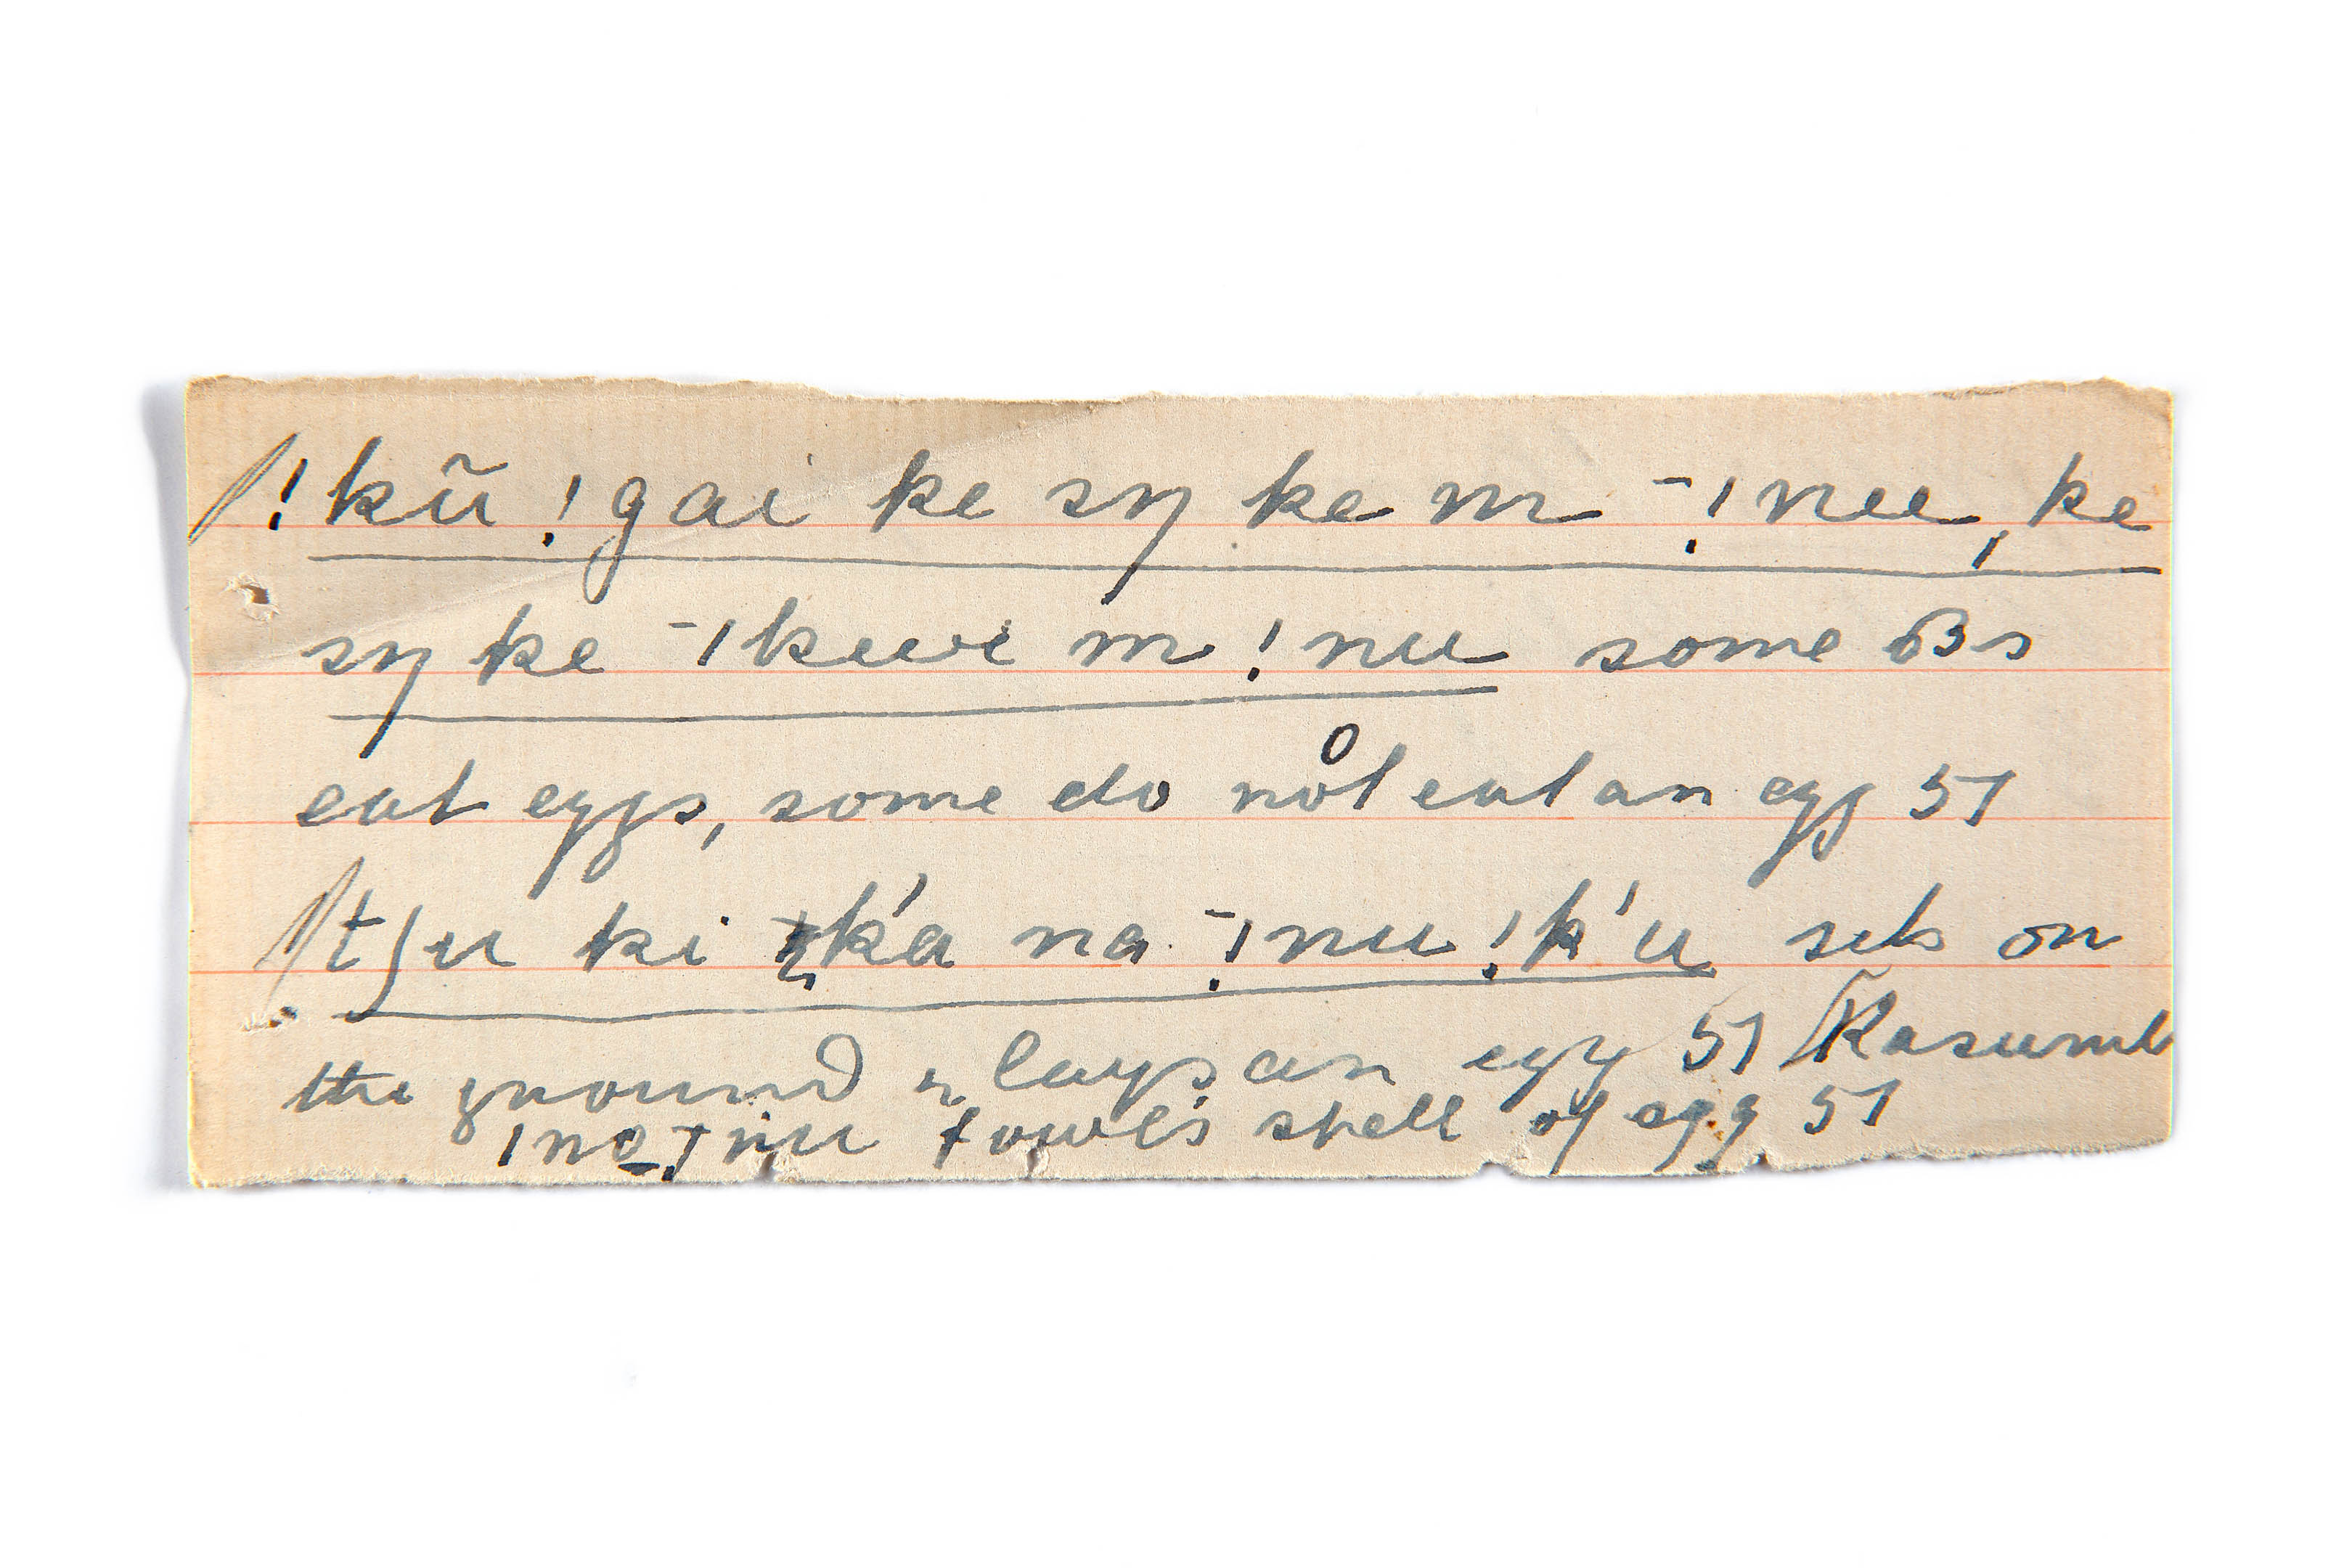 /!kũ !gai ke sŋ ke m ˉ!nu, ke
sŋ ke ˉǀkuve m !nu some Bs
eat eggs, some do not eat an egg 51
/tʃu ki k'a na ˉ!nu !k'u sits on
the ground & lays an egg 51 /Kasumb
ǀno ˍ!nu fowl's shell of egg 51